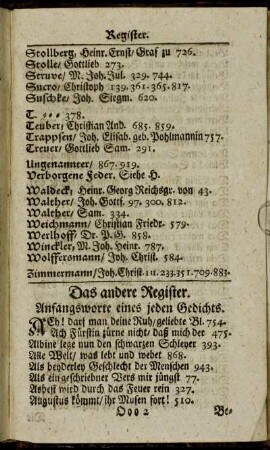 Register.
Stollberg, Heinr. Ernst/ Graf zu 726.
Stolle/ Gottlieb 273.
Struve/ M. Joh. Jul. 329. 744.
Sucro/ Christoph 139. 361. 365. 817.
Suschke/ Joh. Siegm. 620.
T. *** 378.
Teuber/ Christian And. 685. 859.
Trappsen/ Joh. Elisab. geb. Pohlmannin 757.
Treuer/ Gottlieb Sam. 291.
Ungenannter/ 867. 919.
Verborgene Feder, Siehe H.
Waldeck, Heinr. Georg Reichsgr. von 43.
Walther/ Joh. Gottf. 97. 300. 812.
Walther/ Sam. 334.
Weichmann/ Christian Friedr. 579.
Werlhoff/ Dr. P. G. 858.
Winckler, M. Joh. Heinr. 787.
Wolffersmann/ Joh. Christ. 584.
Zimmermann/ Joh. Christ. 111. 233. 351. 709. 883.
Das andere Register.
Anfangsworte eines jeden Gedichts.
Ach! darf man deine Ruh/ geliebte Bl. 754.
Ach Fürstin zürne nicht/ daß mich der 475.
Albine lege nun den schwarzen Schleyer 393.
Alte Welt/ was lebt und webet 868.
Als beyderley Geschlecht der Menschen 943.
Als ein geschriebner Vers mir jüngst 77.
Asbest wird durch das Feuer rein 327.
Augustus kömmt/ ihr Musen fort! 510.
Ooo 2 Be-